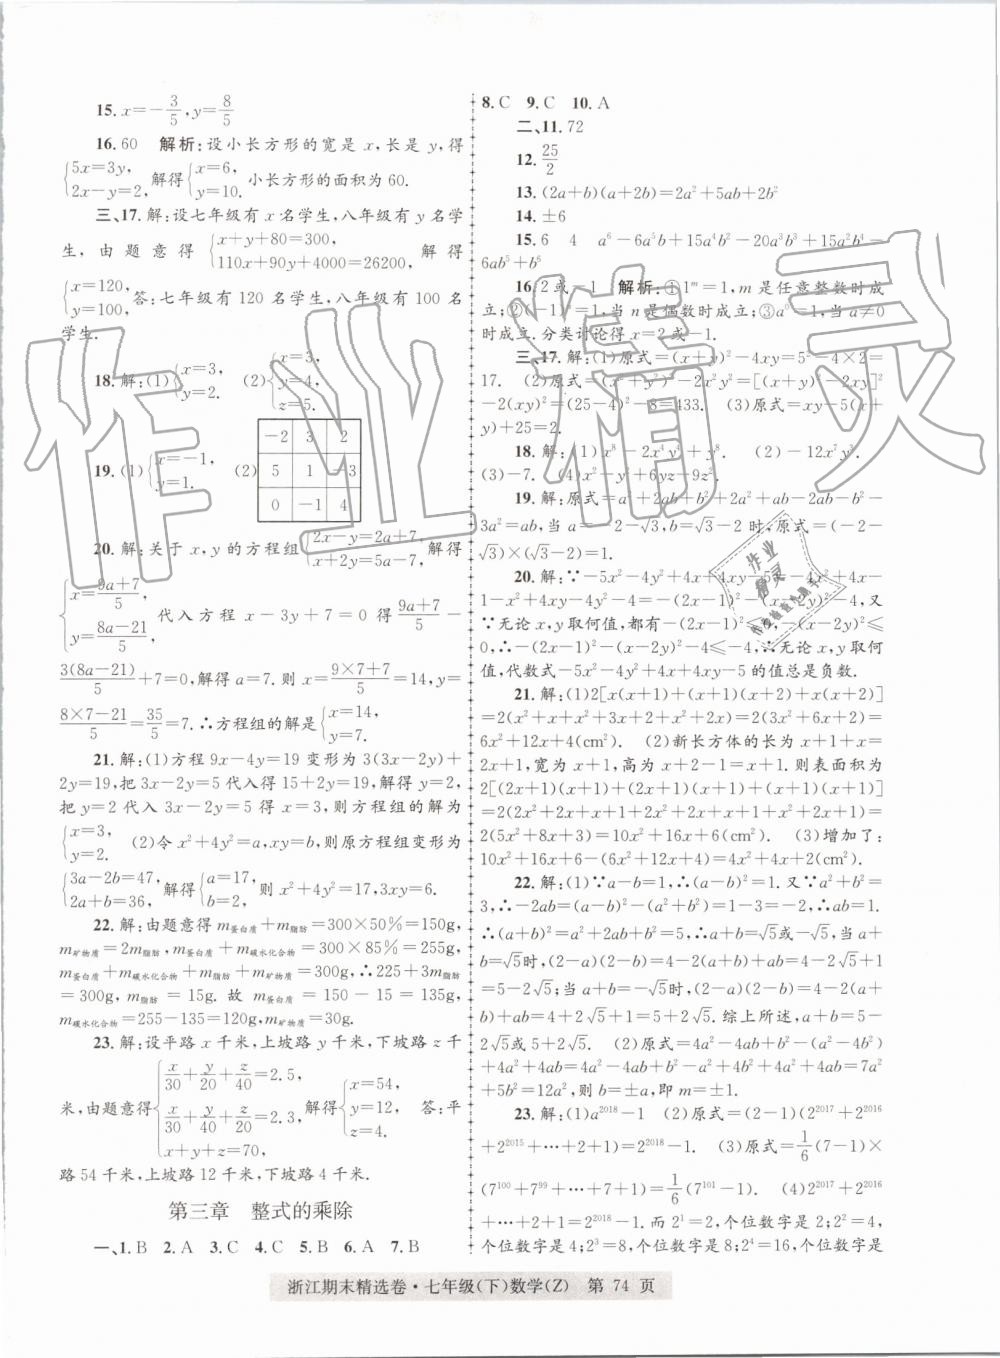 15. x=-3/5, y=8/5
16. 60 解析:设小长方形的宽是 x,长是 y,得
{5x=3y, 2x-y=2, 解得{x=6, y=10. 小长方形的面积为 60.
三、17. 解:设七年级有 x 名学生,八年级有 y 名学
生,由题意得{x+y+80=300, 110x+90y+4000=26200, 解得
{x=120, y=100, 答:七年级有 120 名学生,八年级有 100 名
学生.
18. 解:(1){x=3, y=2. (2){x=3, y=4, z=5.
19. (1){x=-1, y=1. (2)
-2 3 2
5 1 -3
0 -1 4
20. 解:关于 x,y 的方程组{2x-y=2a+7, x+2y=5a-7, 解得
{x=(9a+7)/5, y=(8a-21)/5, 代入方程 x-3y+7=0 得 (9a+7)/5 -
3(8a-21)/5+7=0,解得 a=7. 则 x=(9×7+7)/5=14, y=
(8×7-21)/5=35/5=7. ∴方程组的解是{x=14, y=7.
21. 解:(1)方程 9x-4y=19 变形为 3(3x-2y)+
2y=19,把 3x-2y=5 代入得 15+2y=19,解得 y=2,
把 y=2 代入 3x-2y=5 得 x=3,则方程组的解为
{x=3, y=2. (2)令 x²+4y²=a,xy=b,则原方程组变形为
{3a-2b=47, 2a+b=36, 解得{a=17, b=2, 则 x²+4y²=17,3xy=6.
22. 解:由题意得 m蛋白质+m脂肪=300×50%=150g,
m矿物质=2m脂肪,m蛋白质+m碳水化合物=300×85%=255g,
m蛋白质+m碳水化合物+m脂肪+m矿物质=300g,∴225+3m脂肪
=300g, m脂肪=15g. 故 m蛋白质=150-15=135g,
m碳水化合物=255-135=120g,m矿物质=30g.
23. 解:设平路 x 千米,上坡路 y 千米,下坡路 z 千
米,由题意得{x/30+y/20+z/40=2.5, x/30+y/40+z/20=2.3, x+y+z=70, 解得{x=54, y=12, z=4. 答:平
路 54 千米,上坡路 12 千米,下坡路 4 千米.
第三章 整式的乘除
一、1. B 2. A 3. C 4. C 5. B 6. A 7. B
8. C 9. C 10. A
二、11. 72
12. 25/2
13. (2a+b)(a+2b)=2a²+5ab+2b²
14. ±6
15. 6 4 a⁶-6a⁵b+15a⁴b²-20a³b³+15a²b⁴-
6ab⁵+b⁶
16. 2或-1 解析:①1ᵐ=1,m 是任意整数时成
立;②(-1)ⁿ=1,当 n 是偶数时成立;③a⁰=1,当 a≠0
时成立.分类讨论得 x=2 或-1.
三、17. 解:(1)原式=(x+y)²-4xy=5²-4×2=
17. (2)原式=(x²+y²)²-2x²y²=[(x+y)²-2xy]²
-2(xy)²=(25-4)²-8=433. (3)原式=xy-5(x+
y)+25=2.
18. 解:(1)x⁸-2x⁴y⁴+y⁸. (2)-12x+10.
(3)-7. (4)4x²+6yz-9z².
19. 解:原式=a²+2ab+b²+2a²+ab-2ab-b²-
3a²=ab,当 a=-2-√3,b=√3-2 时,原式=(-2-
√3)×(√3-2)=1.
20. 解:∵-5x²-4y²+4x+4xy-5=-4x²+4x-
1-x²+4xy-4y²-4=-(2x-1)²-(x-2y)²-4,又
∵无论 x,y 取何值,都有-(2x-1)²≤0,-(x-2y)²≤
0,∴-(2x-1)²-(x-2y)²-4≤-4,∴无论 x,y 取何
值,代数式-5x²-4y²+4x+4xy-5 的值总是负数.
21. 解:(1)2[x(x+1)+(x+1)(x+2)+x(x+2)]
=2(x²+x+x²+3x+2+x²+2x)=2(3x²+6x+2)=
6x²+12x+4(cm²). (2)新长方体的长为 x+1+x=
2x+1,宽为 x+1,高为 x+2-1=x+1. 则表面积为
2[(2x+1)(x+1)+(2x+1)(x+1)+(x+1)(x+1)]
=2(2x²+2x+x+1+2x²+2x+x+1+x²+2x+1)=
2(5x²+8x+3)=10x²+16x+6(cm²). (3)增加了:
10x²+16x+6-(6x²+12x+4)=4x²+4x+2(cm²).
22. 解:(1)∵a-b=1,∴(a-b)²=1. 又∵a²+b²=
3,∴-2ab=(a-b)²-(a²+b²)=1-3=-2,∴ab=1.
∴(a+b)²=a²+2ab+b²=5,∴a+b=√5或-√5,当 a+
b=√5时,(2-a)(2-b)=4-2(a+b)+ab=4-2√5+1
=5-2√5;当 a+b=-√5时,(2-a)(2-b)=4-2(a+
b)+ab=4+2√5+1=5+2√5. 综上所述,a+b=5-
2√5或 5+2√5. (2)原式=4a²-4ab+b²-(a²-4b²)
+4a²+4ab=4a²-4ab+b²-a²+4b²+4a²+4ab=7a²+
5b²=12a²,则 b=±a,即 m=±1.
23. 解:(1)a²⁰¹⁸-1 (2)原式=(2-1)(2²⁰¹⁷+2²⁰¹⁶
+2²⁰¹⁵+…+2+1)=2²⁰¹⁸-1. (3)原式=1/6(7-1)×
(7¹⁰⁰+7⁹⁹+…+7+1)=1/6(7¹⁰¹-1). (4)2²⁰¹⁷+2²⁰¹⁶
+…+2+1=2²⁰¹⁸-1. 而 2¹=2,个位数字是 2;2²=4,
个位数字是 4;2³=8,个位数字是 8;2⁴=16,个位数字是
浙江期末精选卷·七年级(下)数学(Z) 第 74 页
作业精灵
作业精灵